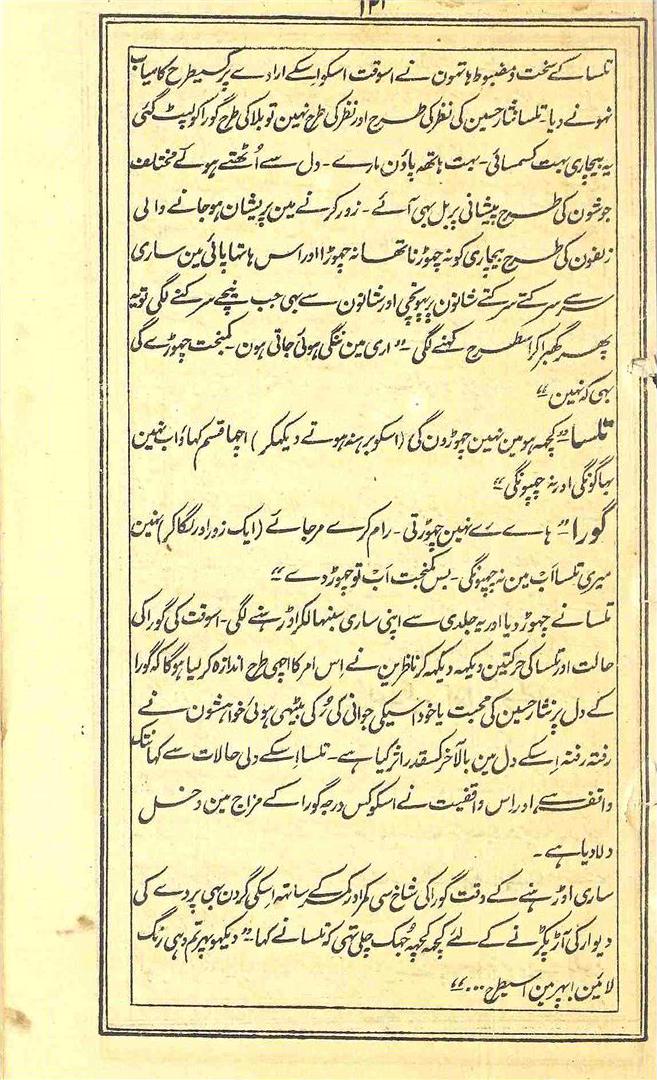 ۱۲۱
تلسا کے سخت و مضبوط ہاتھون نے اسوقت اسکو اسکے ارادے پر کسیطرح کامیاب
نہونے دیا۔ تلسا نثار حسین کی نظر کی طرح اور نظر کی طرح نہین تو بلا کی طرح گورا کو لپٹ گئی
یہ بیچاری بہت کسمسائی۔ بہت ہاتھہ پاؤن مارے۔ دل سے اُٹھتے ہوئے مختلف
جوشون کی طرح پیشانی پر بل بہی آئے۔ زور کرنے مین پریشان ہو جانے والی
زلفون کی طرح بیچاری کو نہ چھوڑنا تھا نہ چھوڑا اور اس ہاتھا پائی مین ساری
سر سے سرکتے سرکتے شانون پر پہونچی اور شانون سے بہی جب نیچے سرکنے لگی تو یہ
پھر گھبرا کر اسطرح کہنے لگی۔ ”اری مین ننگی ہوئی جاتی ہون۔ کمبخت چھوڑے گی
بہی کہ نہین“
تلسا۔ ”کچھہ ہو مین نہین چھوڑون گی (اسکو برہنہ ہوتے دیکھکر) اچھا قسم کھاؤ اب نہین
بھاگونگی اور نہ چھپونگی“
گورا۔ ”ہاے ے ے نہین چھوڑتی۔ رام کرے مر جائے (ایک زور اور لگا کر) نہین
میری تلسا اَب مین نہ چھپونگی۔ بس کمبخت اَب تو چھوڑ دے“
تلسا نے چھوڑ دیا اور یہ جلدی سے اپنی ساری سنبھالکر اوڑہنے لگی۔ اسوقت کی گورا کی
حالت اور تلسا کی حرکتین دیکھہ دیکھہ کر ناظرین نے اِس امر کا اچھی طرح اندازہ کر لیا ہوگا کہ گورا
کے دل پر نثار حسین کی محبت یا خود اسیکی جوانی کی رُکی بیٹھی ہوئی خواہشون نے
رفتہ رفتہ اِسکے دل مین بالآخر کسقدر اثر کیا ہے۔ تلسا اِسکے دلی حالات سے کہانتک
واقف ہے، اور اس واقفیت نے اسکو کس درجہ گورا کے مزاج مین دخل
دلا دیا ہے۔
ساری اوڑہنے کے وقت گورا کی شاخ سی کمر اور کمر کے ساتھہ اِسکی گردن بہی پردے کی
دیوار کی آڑ پکڑنے کے لئے کچھہ کچھہ جُھک چلی تہی کہ تلسا نے کہا۔ ”دیکھو پھر تم وہی رنگ
لائین ابہر مین اسیطرح...“